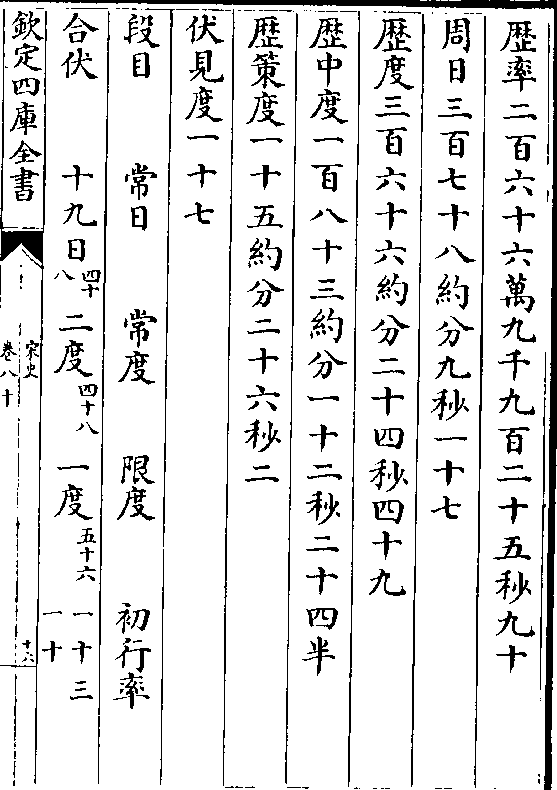 歴率二百六十六萬九千九百二十五秒九十
周日三百七十八約分九秒一十七
歴度三百六十六約分二十四秒四十九
歴中度一百八十三約分一十二秒二十四半
歴策度一十五約分二十六秒二
伏見度一十七
段目 常日 常度 限度 初行率
合伏 十九日四十八 二度四十八 一度五十六 一十三一十
欽定四庫全書 宋史卷八十 十六